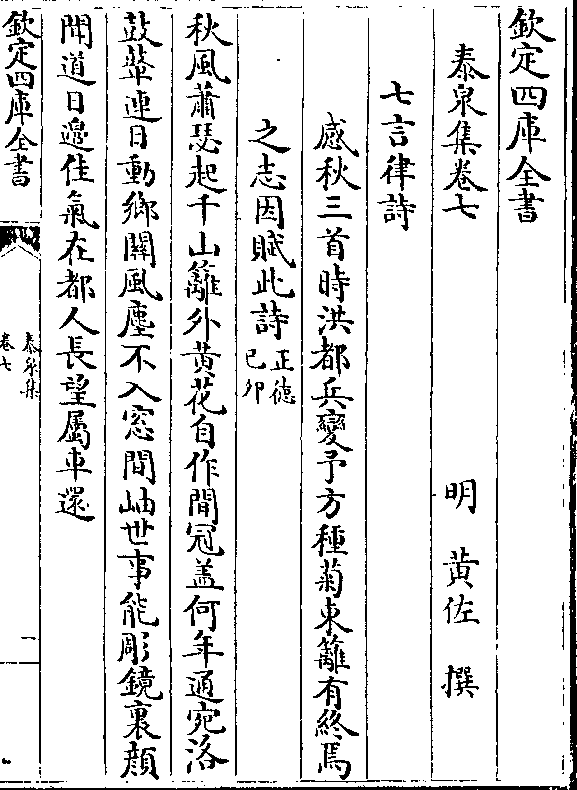 欽定四庫全書
泰泉集卷七
明 黄佐 撰
七言律詩
感秋三首時洪都兵變予方種菊東籬有終焉
之志因賦此詩正德己卯
秋風蕭瑟起千山籬外黄花自作閒冠盖何年通宛洛
鼓鼙連日動鄉闗風塵不入窓間岫世事能彫鏡裏顔
聞道日邉佳氣在都人長望屬車還
欽定四庫全書
泰泉集
卷七
一